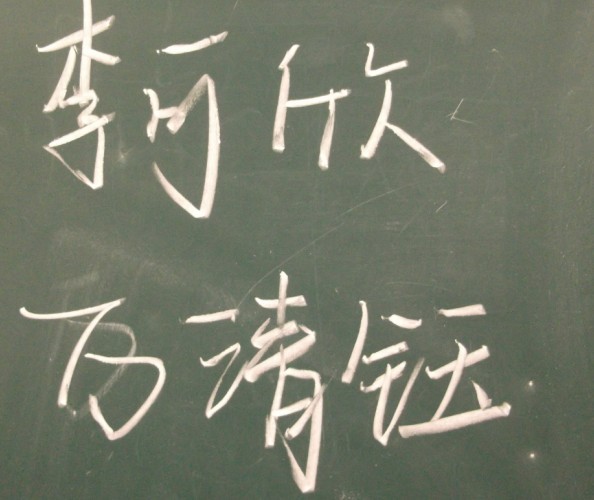 李可欣
万清钰